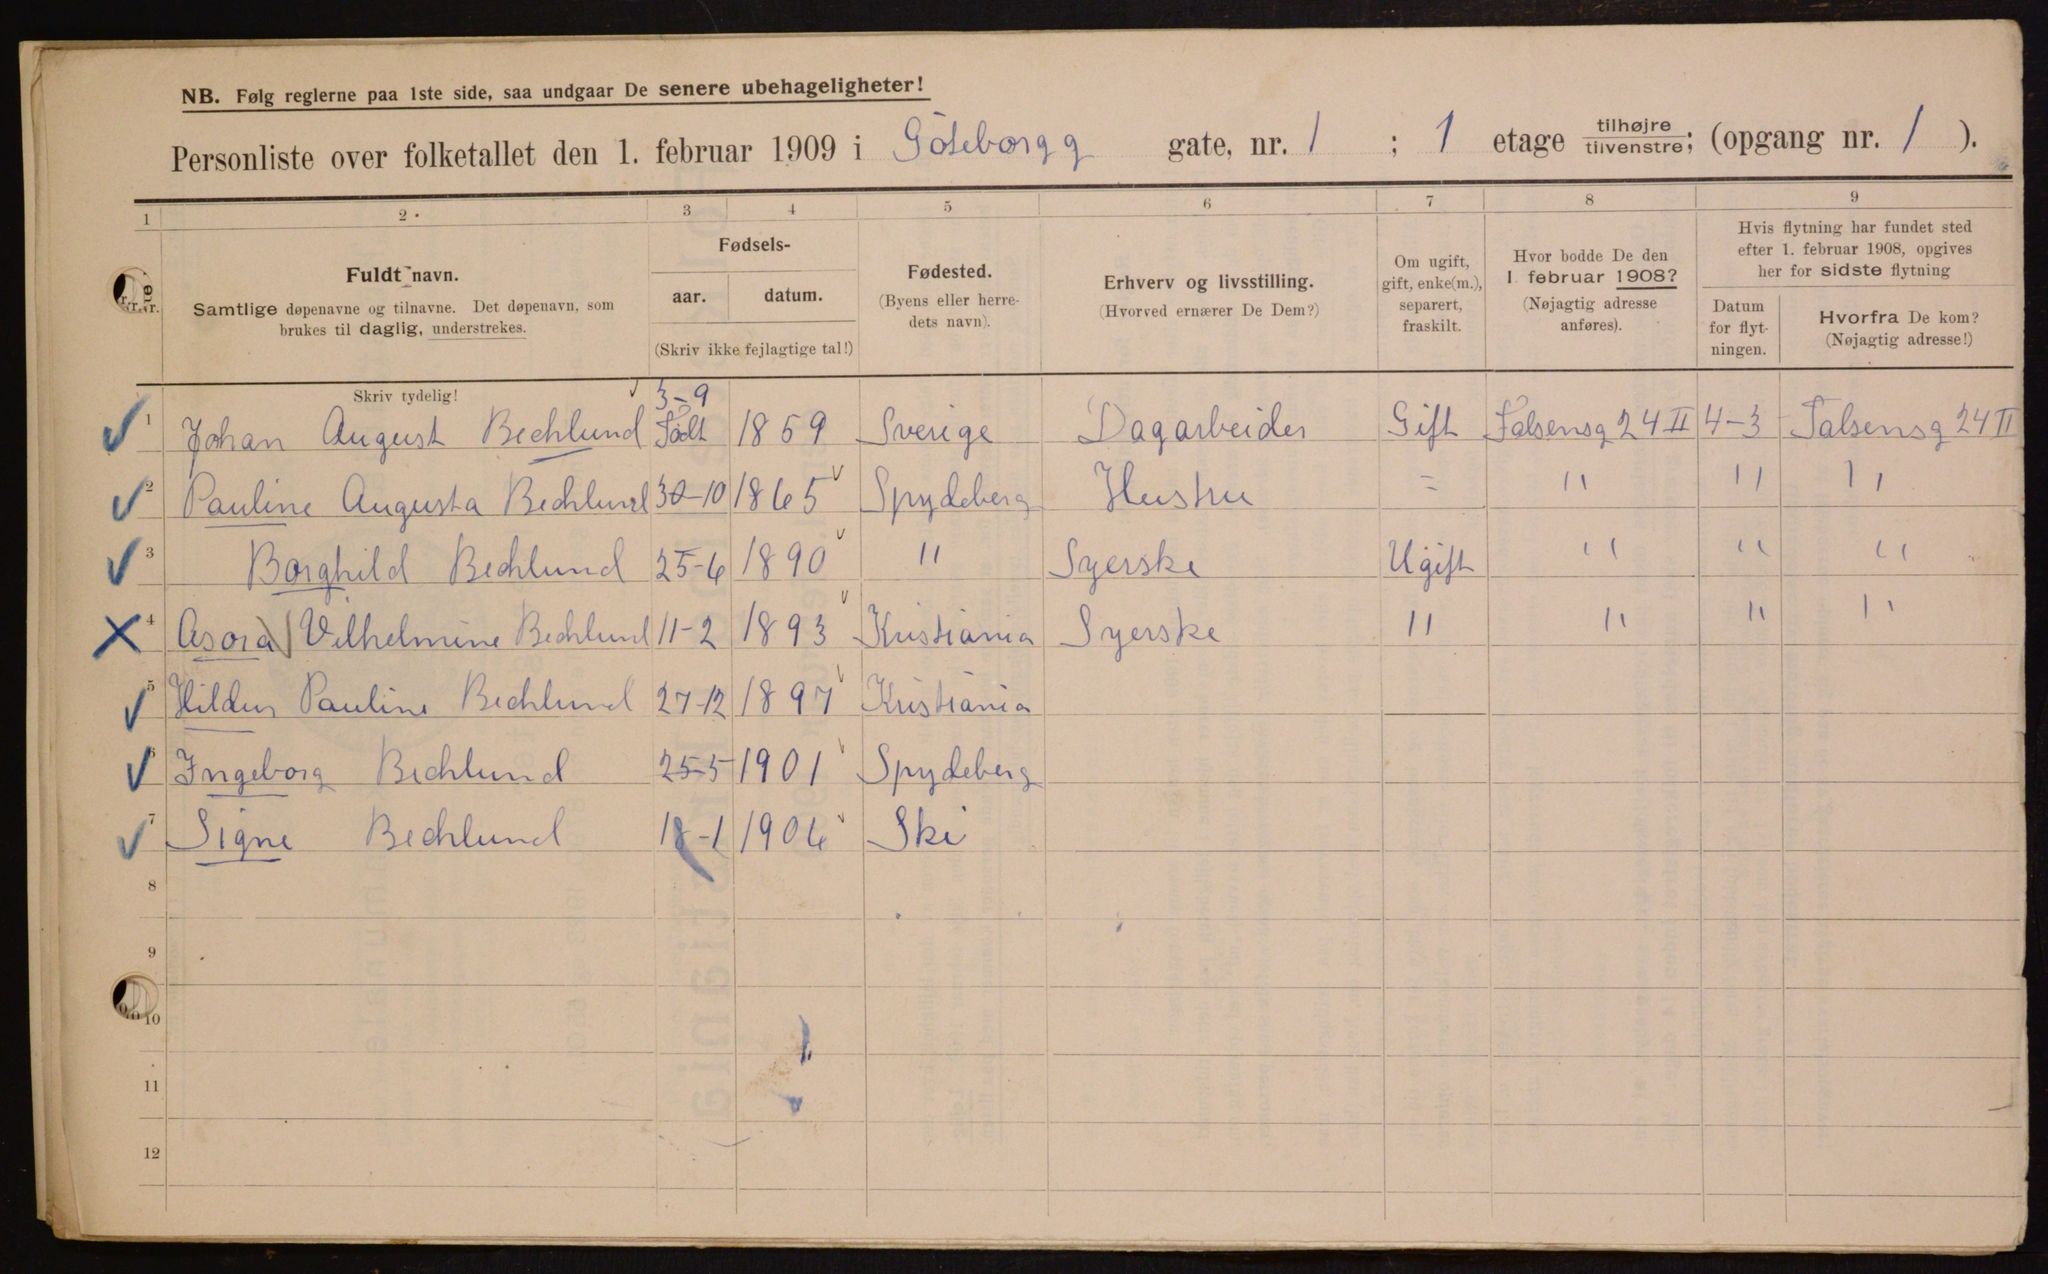 NB. Følg reglerne paa 1ste side, saa undgaar De senere ubehageligheter!
Personliste over folketallet den 1. februar 1909 i Göteborgg gate, nr. 1 ; 1 etage tilhøjre tilvenstre; (opgang nr. 1 ).
1 2 3 4 5 6 7 8 9
Fuldt navn.
Samtlige døpenavne og tilnavne. Det døpenavn, som
brukes til daglig, understrekes.
Skriv tydelig!
Fødsels-
aar. datum.
(Skriv ikke fejlagtige tal!)
Fødested.
(Byens eller herre-
dets navn).
Erhverv og livsstilling.
(Hvorved ernærer De Dem?)
Om ugift,
gift, enke(m.),
separert,
fraskilt.
Hvor bodde De den
1. februar 1908?
(Nøjagtig adresse
anføres).
Hvis flytning har fundet sted
efter 1. februar 1908, opgives
her for sidste flytning
Datum
for flyt-
ningen.
Hvorfra De kom?
(Nøjagtig adresse!)
3-9
1 Johan August Bechlund Født 1859 Sverige Dagarbeider Gift Falsensg 24 II 4-3 Falsensg 24 II
2 Pauline Augusta Bechlund 30-10 1865 Spydeberg Hustru = " " "
3 Borghild Bechlund 25-6 1890 " Syerske Ugift " " "
4 Asora Vilhelmine Bechlund 11-2 1893 Kristiania Syerske " " " "
5 Hildur Pauline Bechlund 27-12 1897 Kristiania
6 Ingeborg Bechlund 25-5 1901 Spydeberg
7 Signe Bechlund 18-1 1906 Ski
8
9
10
11
12